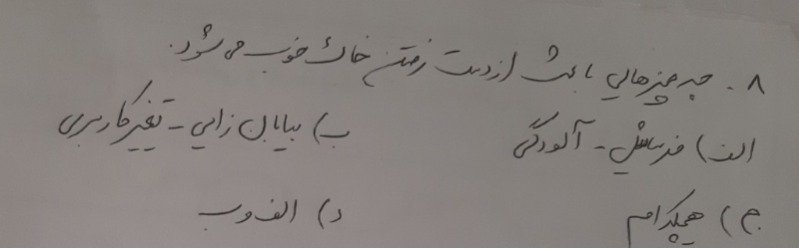 ۸. چه چیزهایی باعث از دست رفتن خاک خوب می شود.
الف) فرسایش - آلودگی ب) بیابان زایی - تغییر کاربری
ج) هیچکدام د) الف و ب